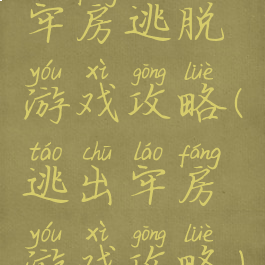 牢房逃脱
yóu xì gōng lüè
游戏攻略(
táo chū láo fáng
逃出牢房
yóu xì gōng lüè
游戏攻略)